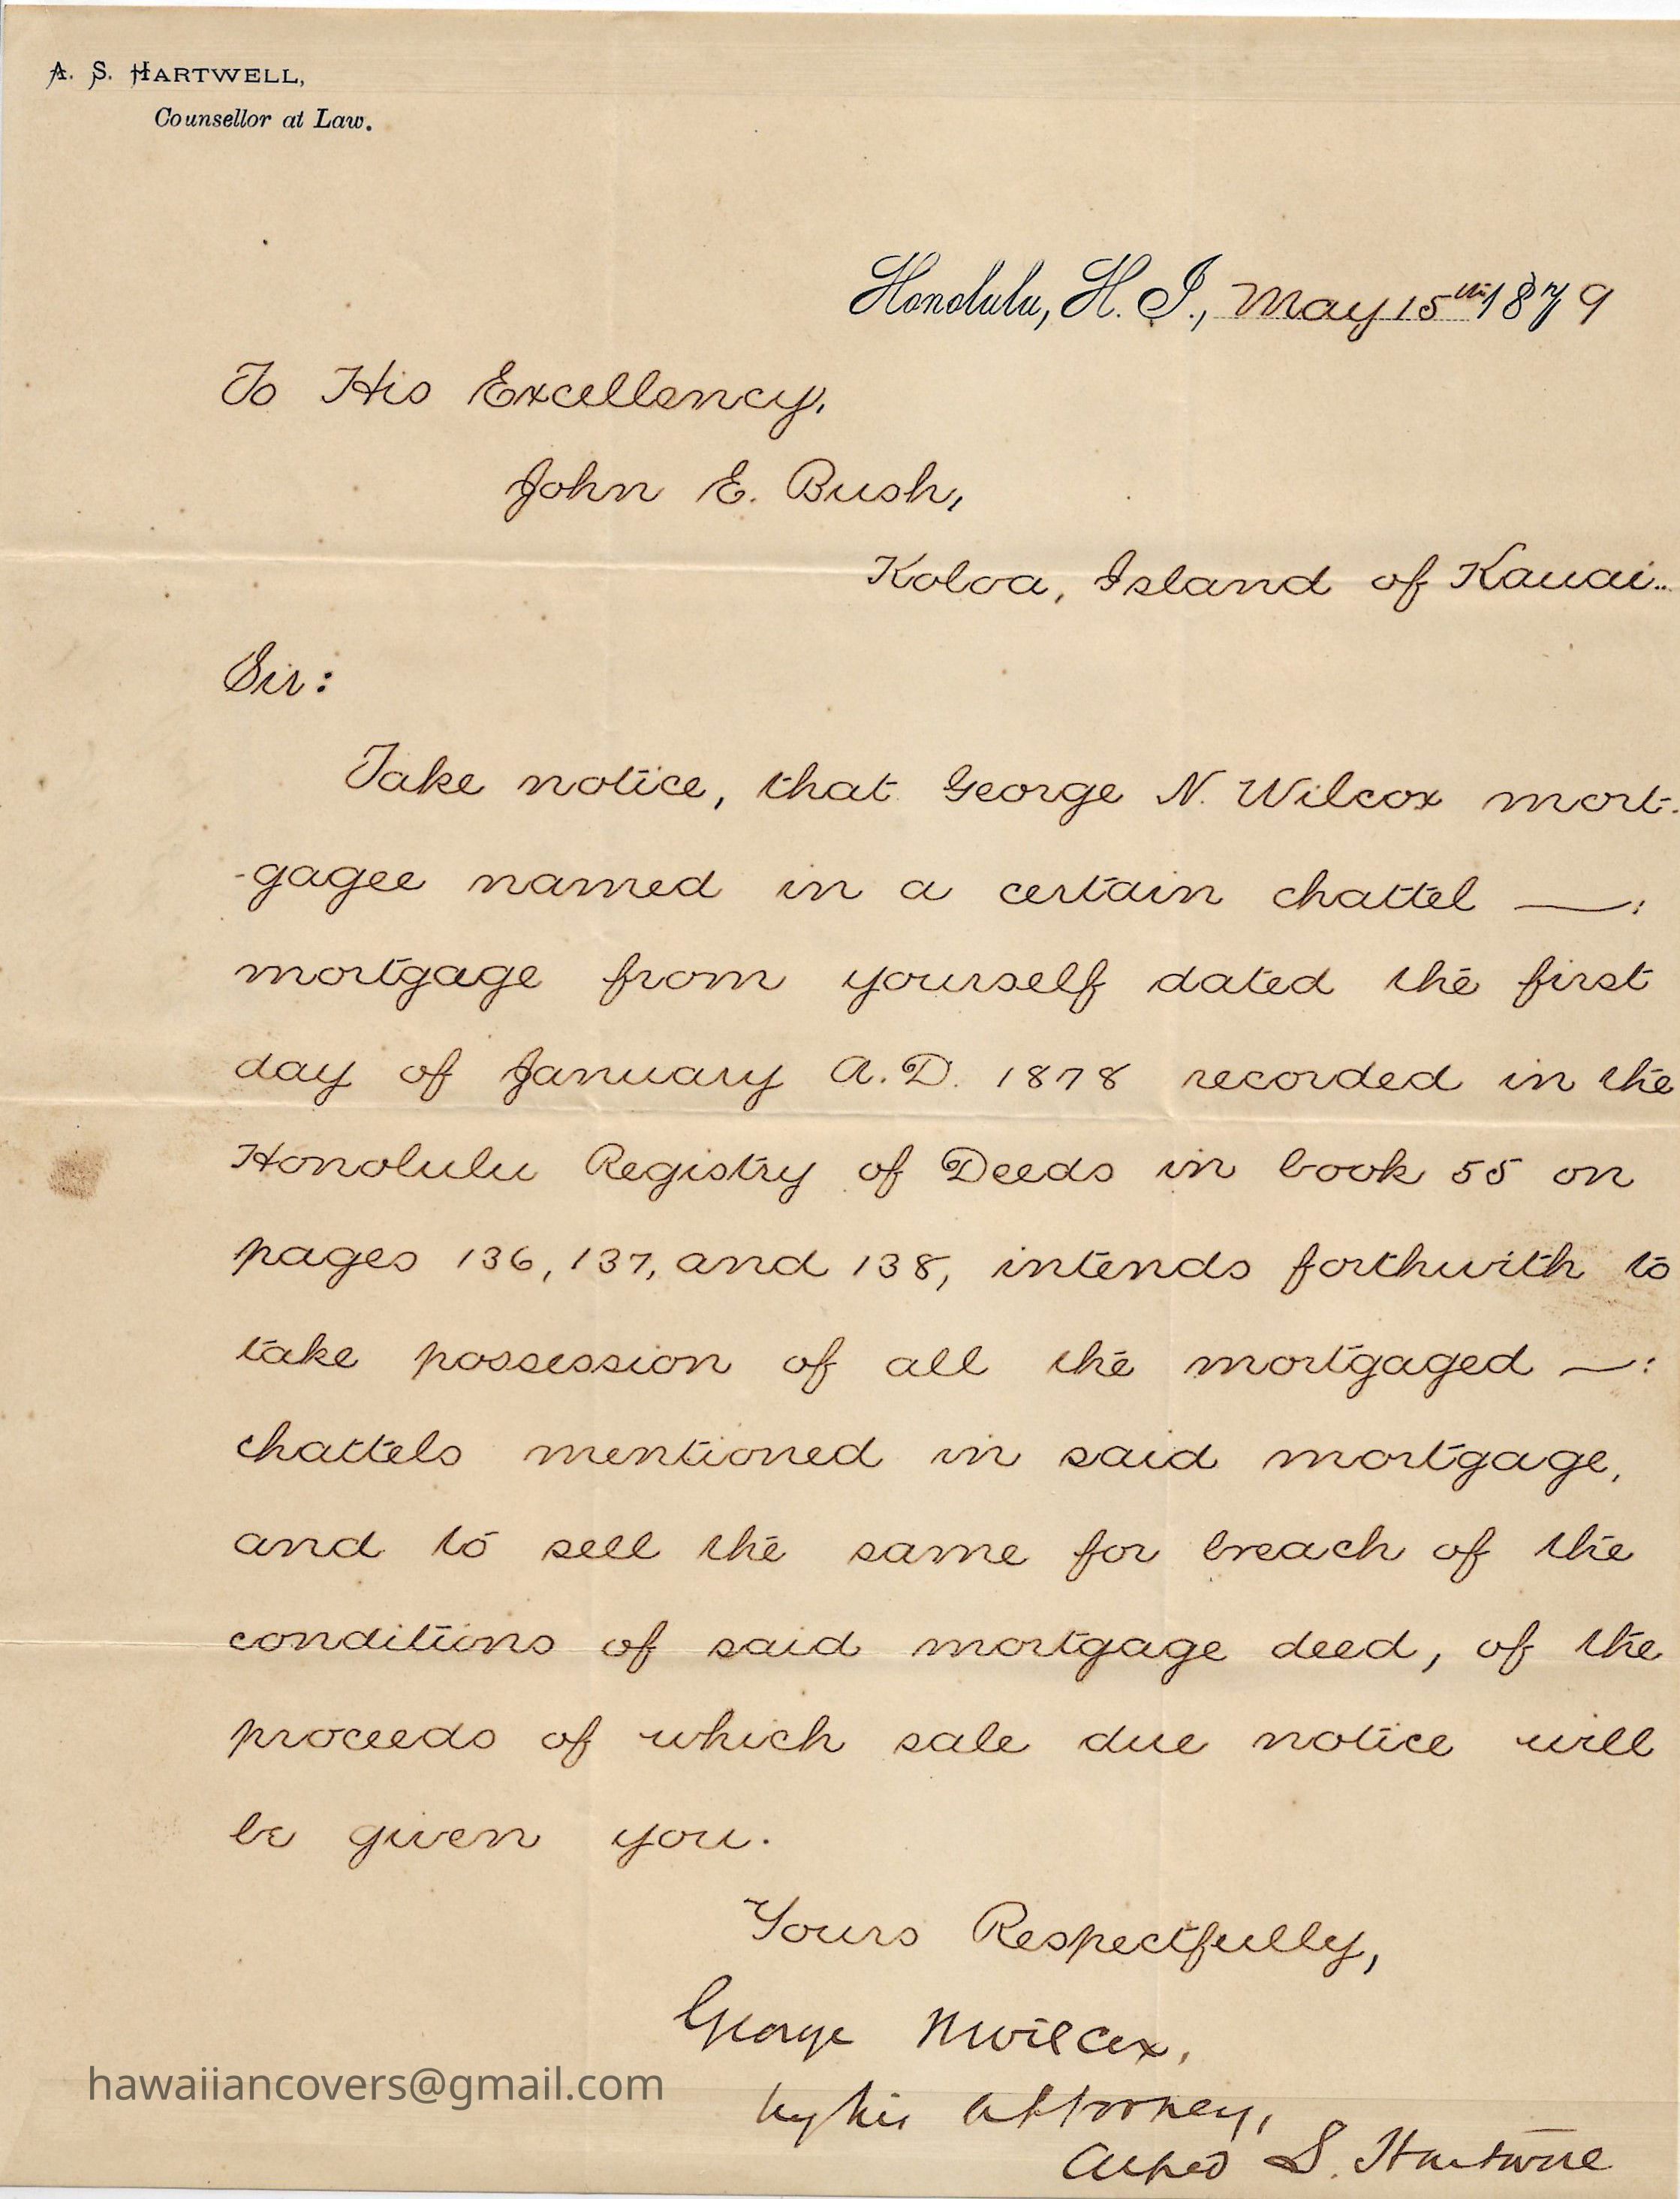 A. S. HARTWELL,
Counsellor at Law.
Honolulu, H. I., May 15th 1879
To His Excellency,
John E. Bush,
Koloa, Island of Kauai..
Sir:
Take notice, that George N. Wilcox mort-
-gagee named in a certain chattel —:
mortgage from yourself dated the first
day of January A.D. 1878 recorded in the
Honolulu Registry of Deeds in book 55 on
pages 136, 137, and 138, intends forthwith to
take possession of all the mortgaged —:
chattels mentioned in said mortgage,
and to sell the same for breach of the
conditions of said mortgage deed, of the
proceeds of which sale due notice will
be given you.
Yours Respectfully,
George N Wilcox,
by his Attorney,
Alfred S. Hartwell
hawaiiancovers@gmail.com